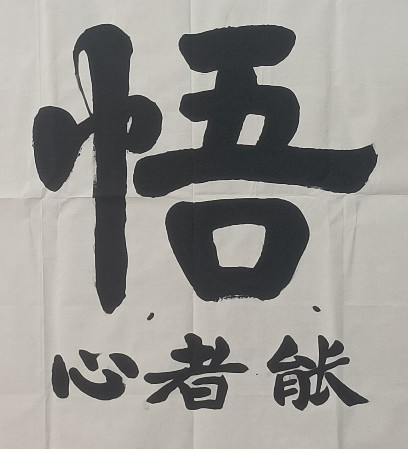 悟
能者心